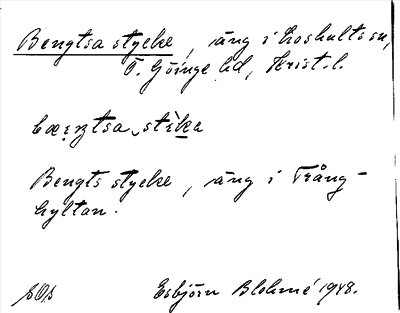 Bengtsa stycke, äng i Loshults sn,
Ö. Göinge hd, Krist. l.
bæŋtsa stìka
Bengts stycke, äng i Trång-
hyltan.
Esbjörn Blohmé 1948.